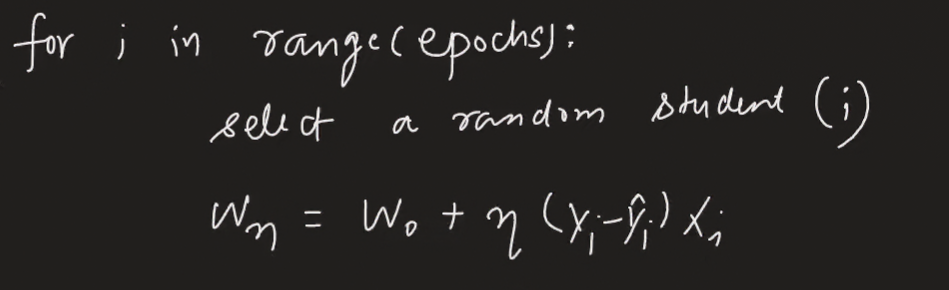 for i in range(epochs):
select a random student (i)
Wₙ = W₀ + η (Yᵢ-Ŷᵢ) Xᵢ